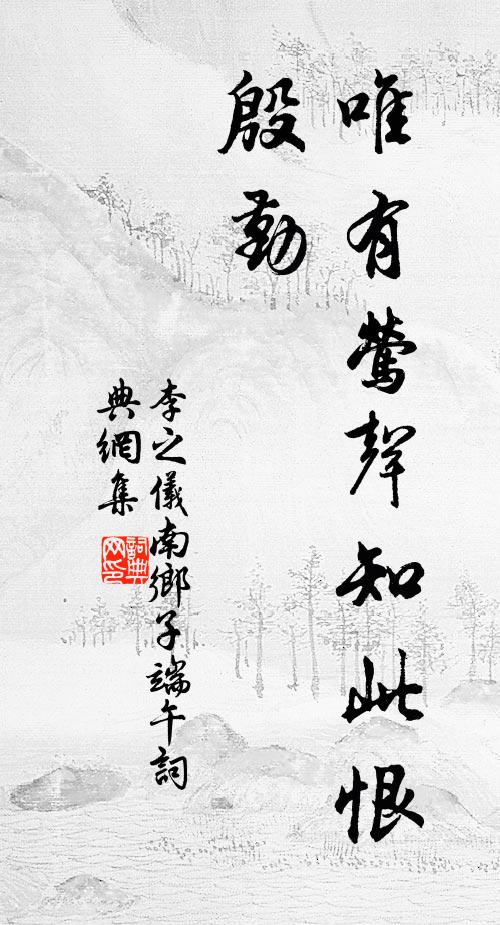 唯有鶯聲知此恨
殷勤
李之儀南鄉子端午詞
典網集
詞典
网印